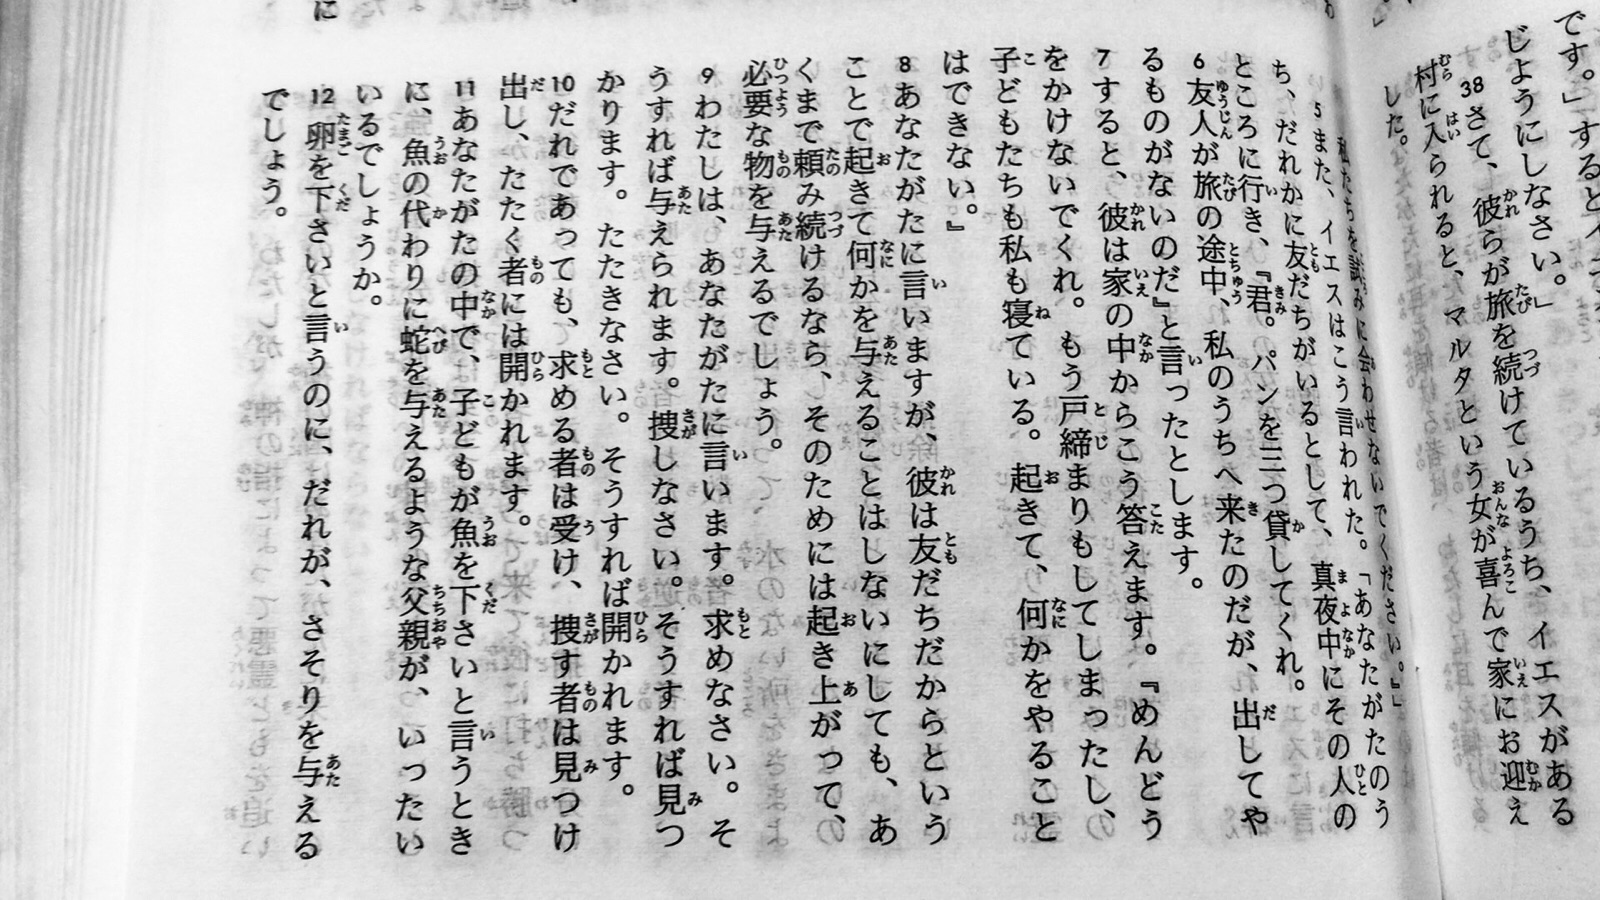 です。」すると
じようにしなさい。」
38 さて、彼らが旅を続けているうち、イエスがある
村に入られると、マルタという女が喜んで家にお迎え
した。
私たちを試みに会わせないでください。』」
5 また、イエスはこう言われた。「あなたがたのう
ち、だれかに友だちがいるとして、真夜中にその人の
ところに行き、『君。パンを三つ貸してくれ。
6 友人が旅の途中、私のうちへ来たのだが、出してや
るものがないのだ』と言ったとします。
7 すると、彼は家の中からこう答えます。『めんどう
をかけないでくれ。もう戸締まりもしてしまったし、
子どもたちも私も寝ている。起きて、何かをやること
はできない。』
8 あなたがたに言いますが、彼は友だちだからという
ことで起きて何かを与えることはしないにしても、あ
くまで頼み続けるなら、そのためには起き上がって、
必要な物を与えるでしょう。
9 わたしは、あなたがたに言います。求めなさい。そ
うすれば与えられます。捜しなさい。そうすれば見つ
かります。たたきなさい。そうすれば開かれます。
10 だれであっても、求める者は受け、捜す者は見つけ
出し、たたく者には開かれます。
11 あなたがたの中で、子どもが魚を下さいと言うとき
に、魚の代わりに蛇を与えるような父親が、いったい
いるでしょうか。
12 卵を下さいと言うのに、だれが、さそりを与える
でしょう。
に